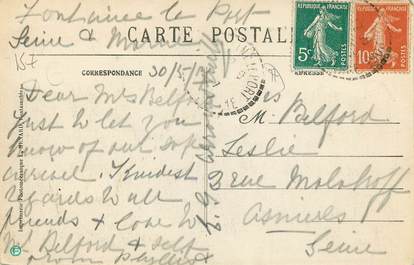 Fontaine le Port
Seine & Marne
CARTE POSTALE
157
CORRESPONDANCE
30/5/
ADRESSE
RÉPUBLIQUE FRANÇAISE
5c
POSTES
RÉPUBLIQUE FRANÇAISE
10c
POSTES
Dear Mrs Belford
Just to let you
know of our safe
arrival. Kindest
regards to all
friends & love to
Mr Belford & self
from Phyllis
M. Belford
Leslie
3 rue Malakoff
Asnieres
Seine